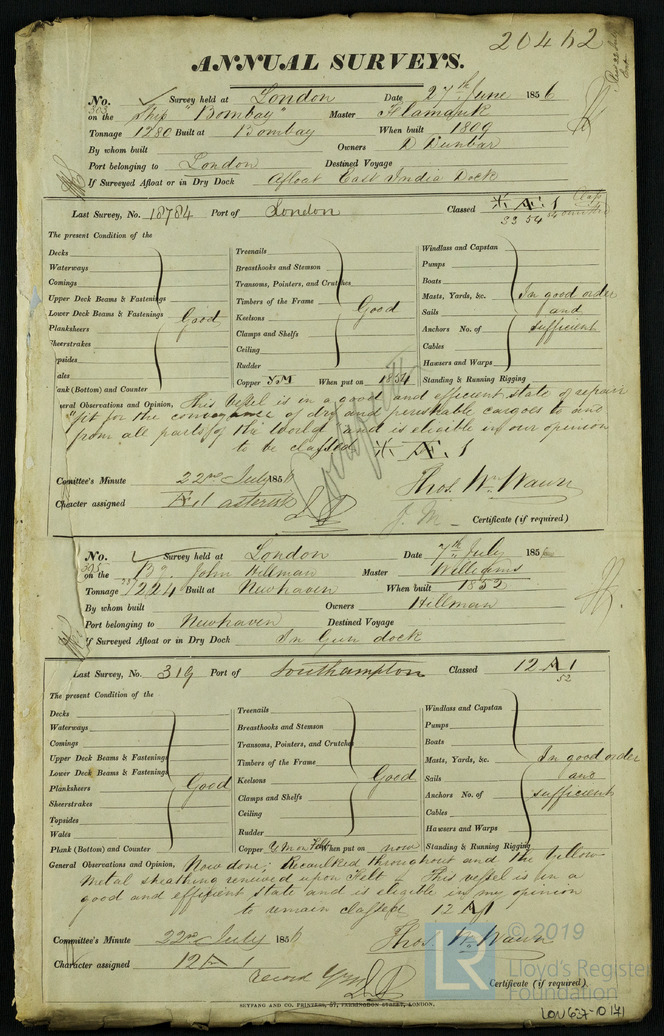 20452
ANNUAL SURVEYS.
No. 303 Survey held at London Date 27th June 1856
on the Ship "Bombay" Master Flamank
Tonnage 1280 Built at Bombay When built 1809
By whom built Owners D Dunbar
Port belonging to London Destined Voyage
If Surveyed Afloat or in Dry Dock Afloat East India Dock
Last Survey, No. 18784 Port of London Classed Æ 1
33 54
The present Condition of the
Decks Treenails Windlass and Capstan
Waterways Breasthooks and Stemson Pumps
Comings Transoms, Pointers, and Crutches Boats
Upper Deck Beams & Fastenings Timbers of the Frame Masts, Yards, &c. In good order
Lower Deck Beams & Fastenings Good Keelsons Good Sails and
Planksheers Clamps and Shelfs Anchors No. of sufficient
Sheerstrakes Ceiling Cables
opsides Rudder Hawsers and Warps
ales Copper Y.M When put on 1854 Standing & Running Rigging
ank (Bottom) and Counter
eral Observations and Opinion, This vessel is in a good and efficient state of repair
"fit for the conveyance of dry and perishable cargoes to and
from all parts of the World" and is eligible in our opinion
to be classed Æ 1
Committee's Minute 22nd July 1856 Thos. Wm. Wawn
Character assigned Æ 1 asterisk J. M Certificate (if required)
No. 305 Survey held at London Date 7th July 185
on the Bk John Hillman Master Williams
Tonnage 1224 Built at Newhaven When built 1852
By whom built Owners Hillman
Port belonging to Newhaven Destined Voyage
If Surveyed Afloat or in Dry Dock In Gun dock
Last Survey, No. 319 Port of Southampton Classed 12 A 1
52
The present Condition of the
Decks Treenails Windlass and Capstan
Waterways Breasthooks and Stemson Pumps
Comings Transoms, Pointers, and Crutches Boats
Upper Deck Beams & Fastenings Timbers of the Frame Masts, Yards, &c. In good order
Lower Deck Beams & Fastenings Keelsons Good Sails and
Planksheers Good Clamps and Shelfs Anchors No. of sufficient
Sheerstrakes Ceiling Cables
Topsides Rudder Hawsers and Warps
Wales Copper Y M on Felt When put on now Standing & Running Rigging
Plank (Bottom) and Counter
General Observations and Opinion, Now done; Recaulked throughout and the yellow
metal sheathing renewed upon Felt – This vessel is in a
good and efficient state and is eligible in my opinion
to remain classed 12 A 1
Committee's Minute 22nd July 1856 Thos. Wm. Wawn
Character assigned 12 A 1
record YM Certificate (if required)
SEYFANG AND CO. PRINTERS, 57, FARRINGDON STREET, LONDON.
LR © 2019
Lloyd's Register
Foundation
LON637-0171